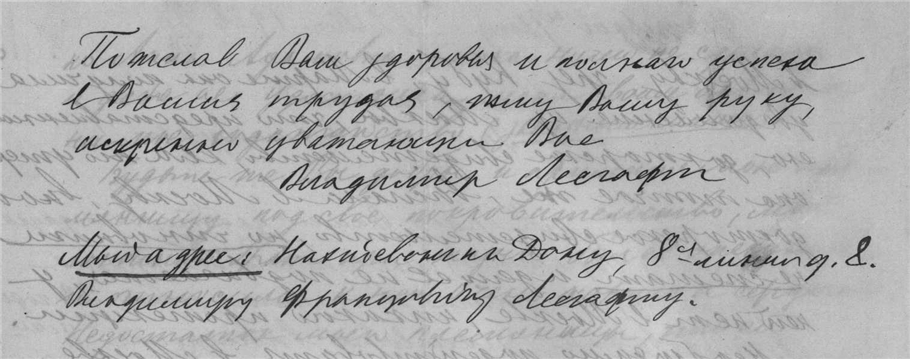 Пожелав Вам здоровья и полнаго успеха
в Ваших трудах, жму Вашу руку,
искренно уважающий Вас
Владимир Лесгафт
Мой адрес: Нахичевань на Дону, 8ая линия д. 8.
Владимиру Францовичу Лесгафту.